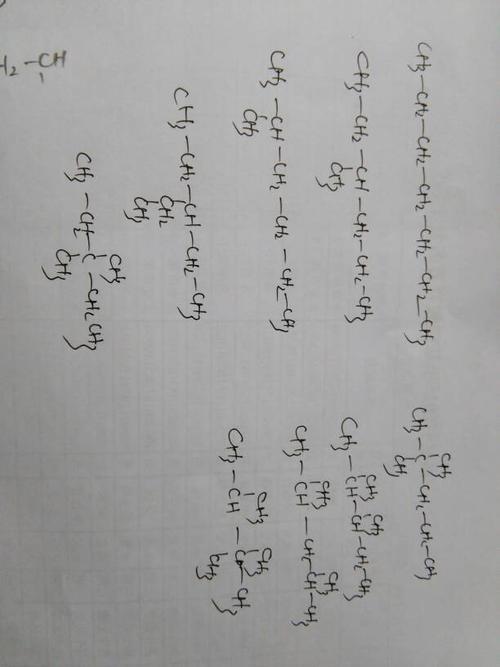 CH3—CH2—CH2—CH2—CH2—CH2—CH3
CH3—CH2—CH—CH2—CH2—CH3
CH3
CH3—CH—CH2—CH2—CH2—CH3
CH3
CH3—CH2—CH—CH2—CH3
CH2
CH3
CH3
CH3—CH2—C—CH2CH3
CH3
H2—CH
CH3
CH3—C—CH2—CH2—CH3
CH3
CH3 CH3
CH3—CH—CH—CH2—CH3
CH3 CH3
CH3—CH—CH2—CH—CH3
CH3 CH3
CH3—CH—C—CH3
CH3